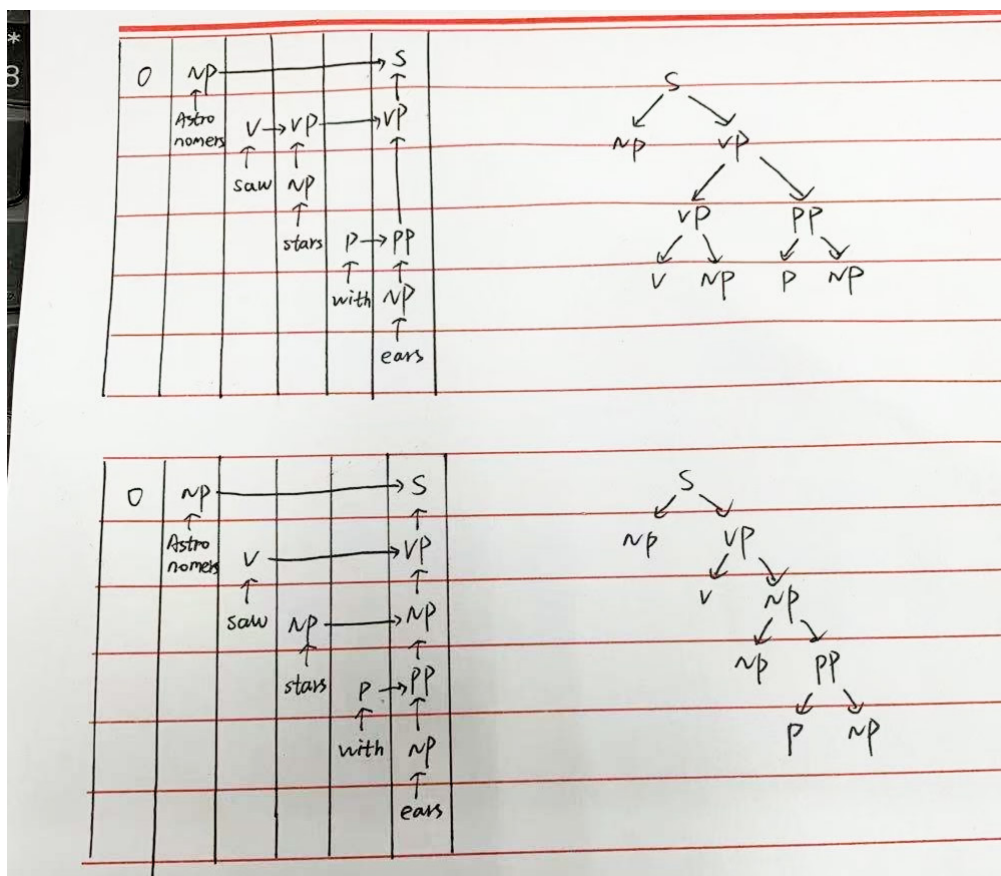 *
8
0 NP → S
Astro
nomers V → VP → VP
saw NP
stars P → PP
with NP
ears
S
NP VP
VP PP
V NP P NP
0 NP → S
Astro
nomers V → VP
saw NP → NP
stars P → PP
with NP
ears
S
NP VP
V NP
NP PP
P NP